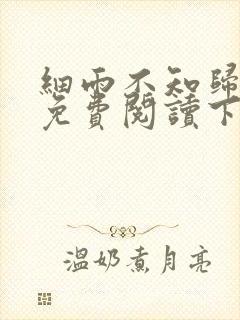 細雨不知歸
免費閱讀下
溫奶煮月亮